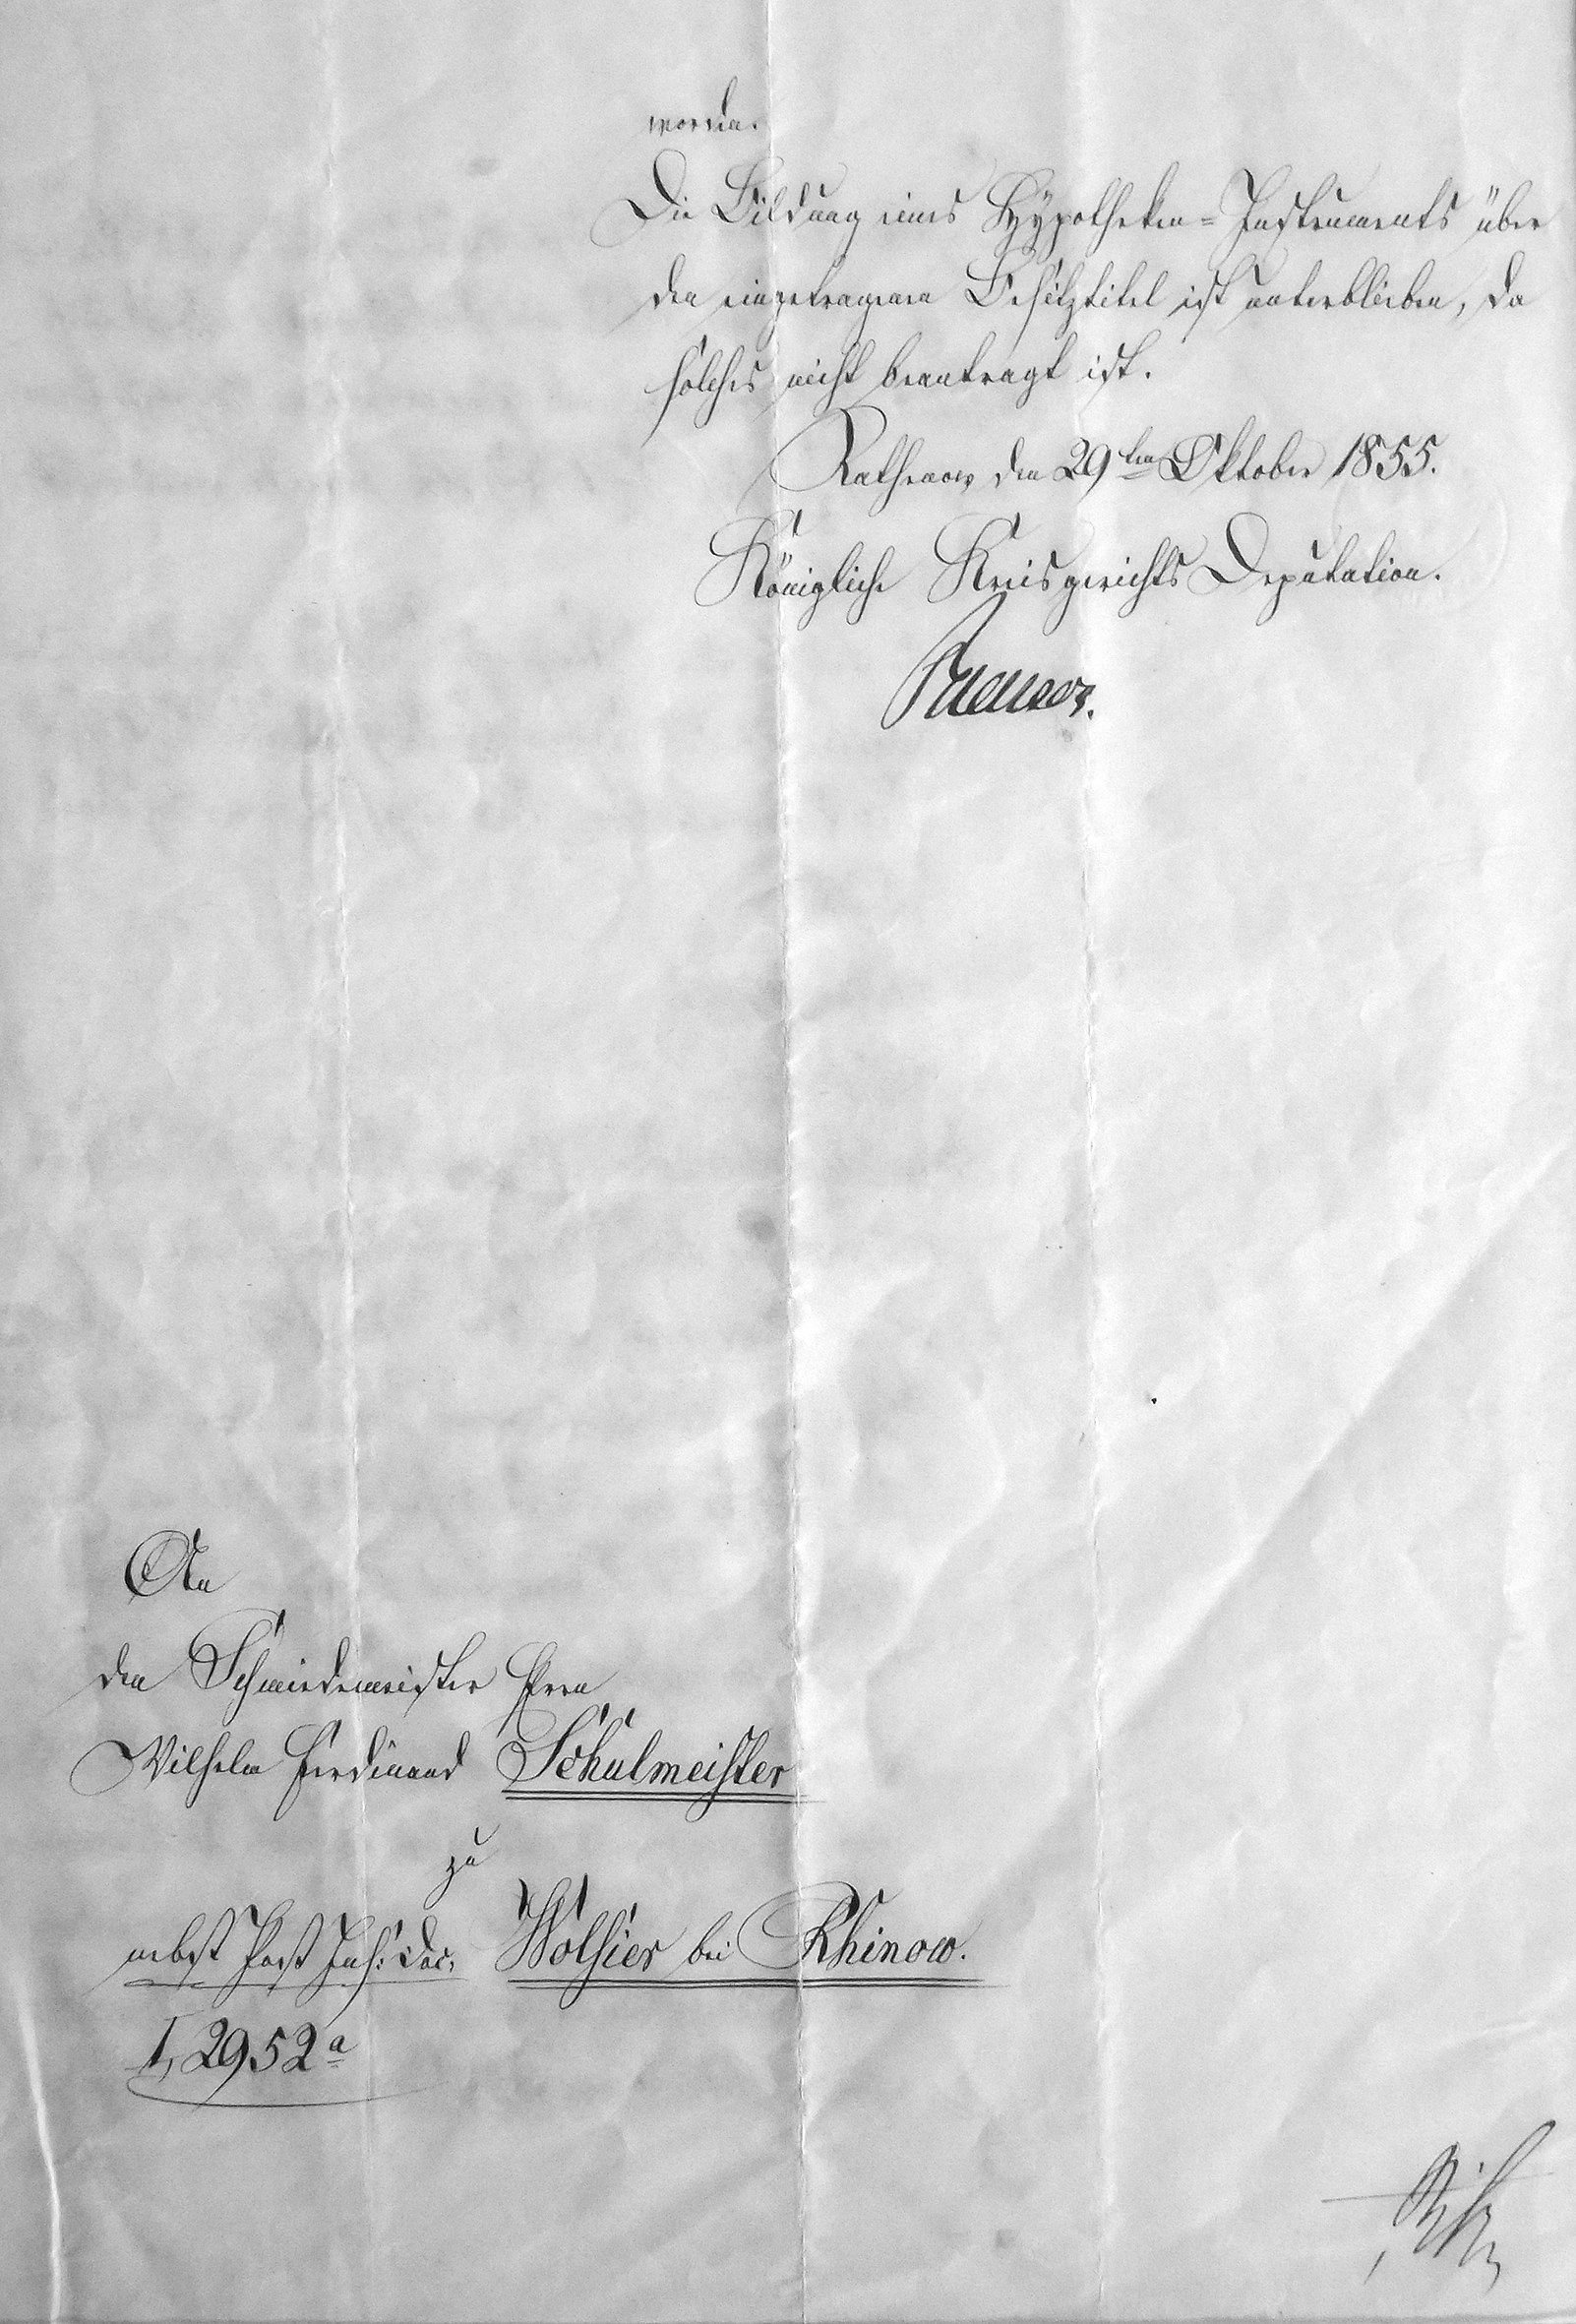 worden.
Die Bildung eines Hypotheken-Instruments über
den eingetragenen Besitztitel ist unterblieben, da
solches nicht beantragt ist.
Rathenow den 29ten Oktober 1855.
Königliche Kreisgerichts Deputation.
An
den Schmiedemeister Herrn
Wilhelm Ferdinand Schulmeister
zu
nebst Post Inf: Doc. Wolsier bei Rhinow.
I, 2952a